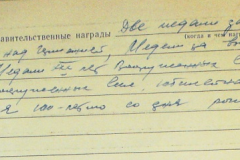 авительственные награды Две медали з
(когда и чем наг
над Германией, Медаль за в
Медаль III лет Вооруженных С
вооруженных сил, юбилейн
я 100-летию со дня рож